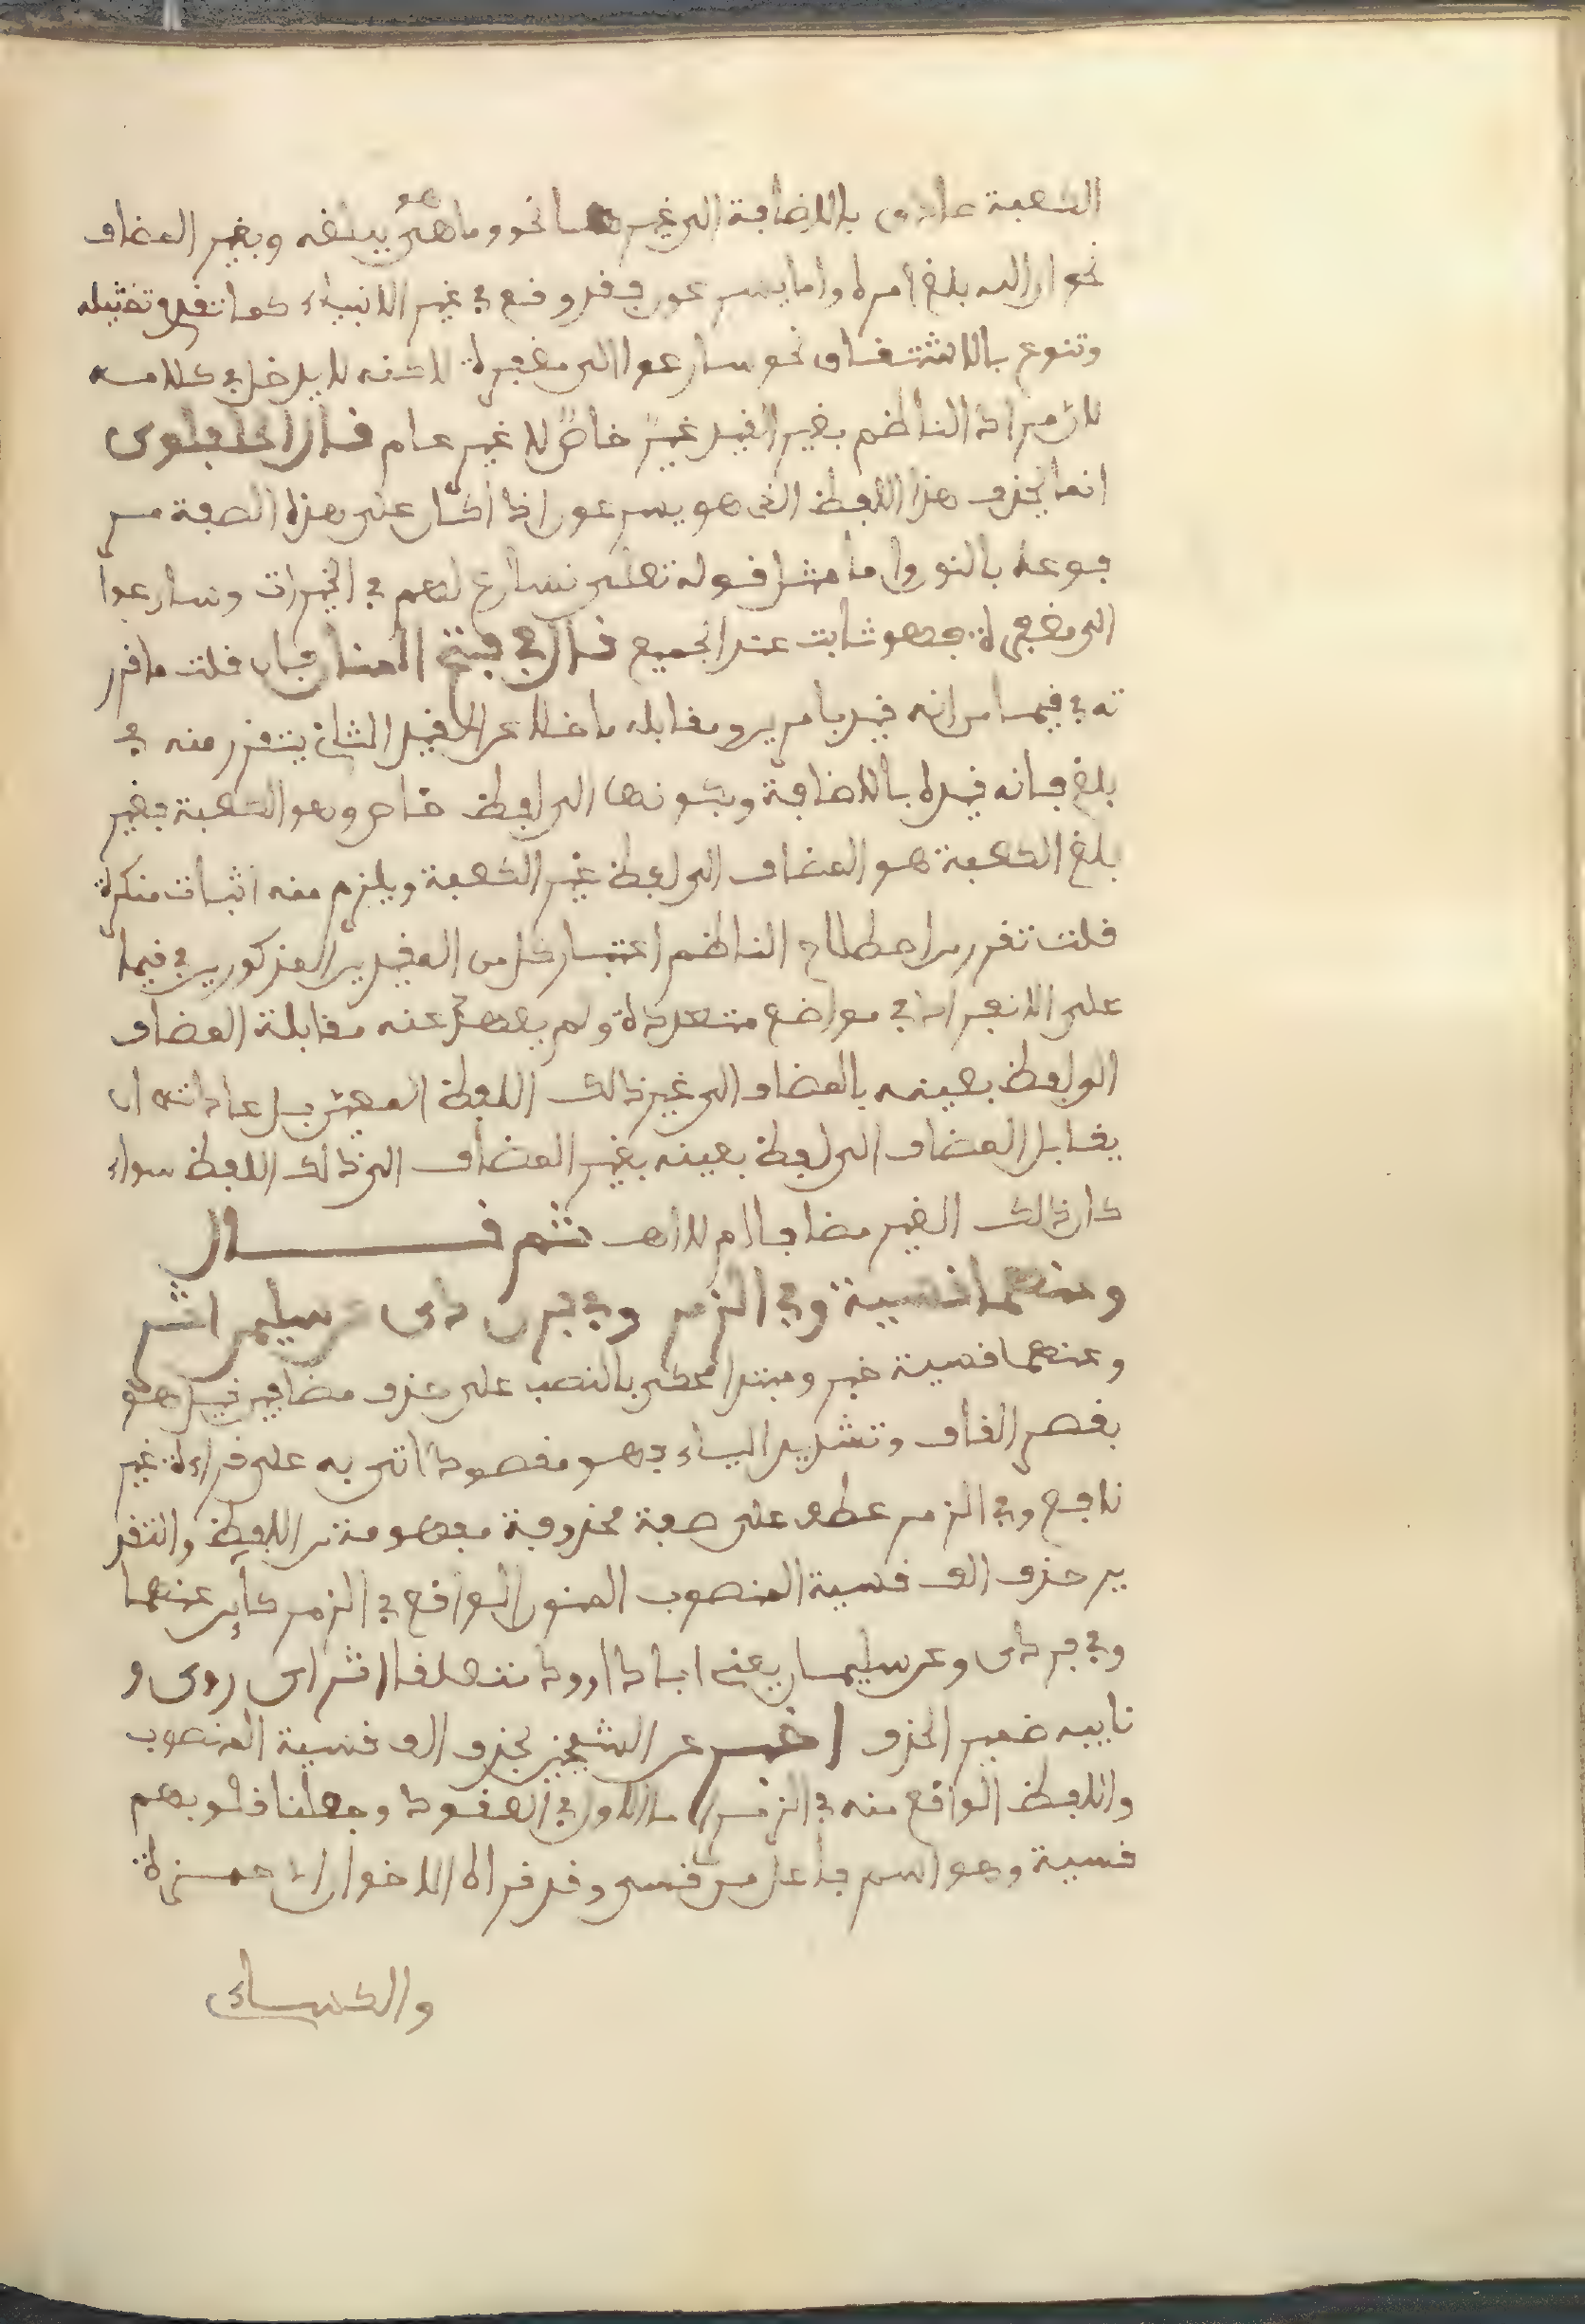 الكعبة عادى بالاضافة الى غيرها نحو وما هو ببلغه وبغير المضاف
نحو ان الله بلغ امره واما يسرعون فقد وقع في غير الانبياء كما تقدم تمثيله
وتنوع بالاشتقاق نحو سارعوا الى مغفرة لاكنه لا يدخل في كلامه
لان مراد الناظم بغير القيد غير خاص لا غير عام قال اللبيب
انما يحذف هذا اللفظ الذى هو يسرعون اذا كان على هذه الصفة مر
فوعا بالنون واما مثل قوله تعلى نسارع لهم في الخيرات وسارعوا
الى مغفرة فهو ثابت عند الجميع قال في فتح المنان فان قلت ما قرر
ته في قيما من انه قيد بامرين ومقابله ما خلا عن القيد الثانى يتقرر منه في
بلغ فانه قيده بالاضافة وبكونها الى لفظ خاص وهو الكعبة فغير
بلغ الكعبة هو المضاف الى لفظ غير الكعبة ويلزم منه اثبات منكرة
قلت تقرر من اصطلاح الناظم اعتبار كل من القيدين المذكورين في قيما
على الانفراد في مواضع متعددة ولم يعهد عنه مقابلة المضاف
الى لفظ بعينه بالمضاف الى غير ذالك اللفظ المعين بل عادته ان
يقابل المضاف الى لفظ بعينه بغير المضاف الى ذالك اللفظ سواء
كان ذالك الغير مضافا ام لا اهـ ثم قال
وعنهما قسية وفي الزمر وفي فرادى عن سليمن اثر
وعنهما قسية خبر ومبتدا محكى بالنصب على حذف مضافين قبل هو
بقصر القاف وتشديد الياء فهو مقصود اتى به على قراءة غير
نافع وفي الزمر عطف على صفة محذوفة مفهومة من اللفظ والتقد
ير حذف الف قسية المنصوب المنون الواقع في الزمر كاين عنهما
وفي فردى وعن سليمان يعنى ابا داوود متعلقا اثر اى روى و
نايبه ضمير الحذف اخبر عن الشيخين بحذف الف قسية المنصوب
واللفظ الواقع منه في الزمر اما الاول في العقود وجعلنا قلوبهم
قسية وهو اسم فاعل من قسى وقد قراه الاخوان حمزة
والكساى